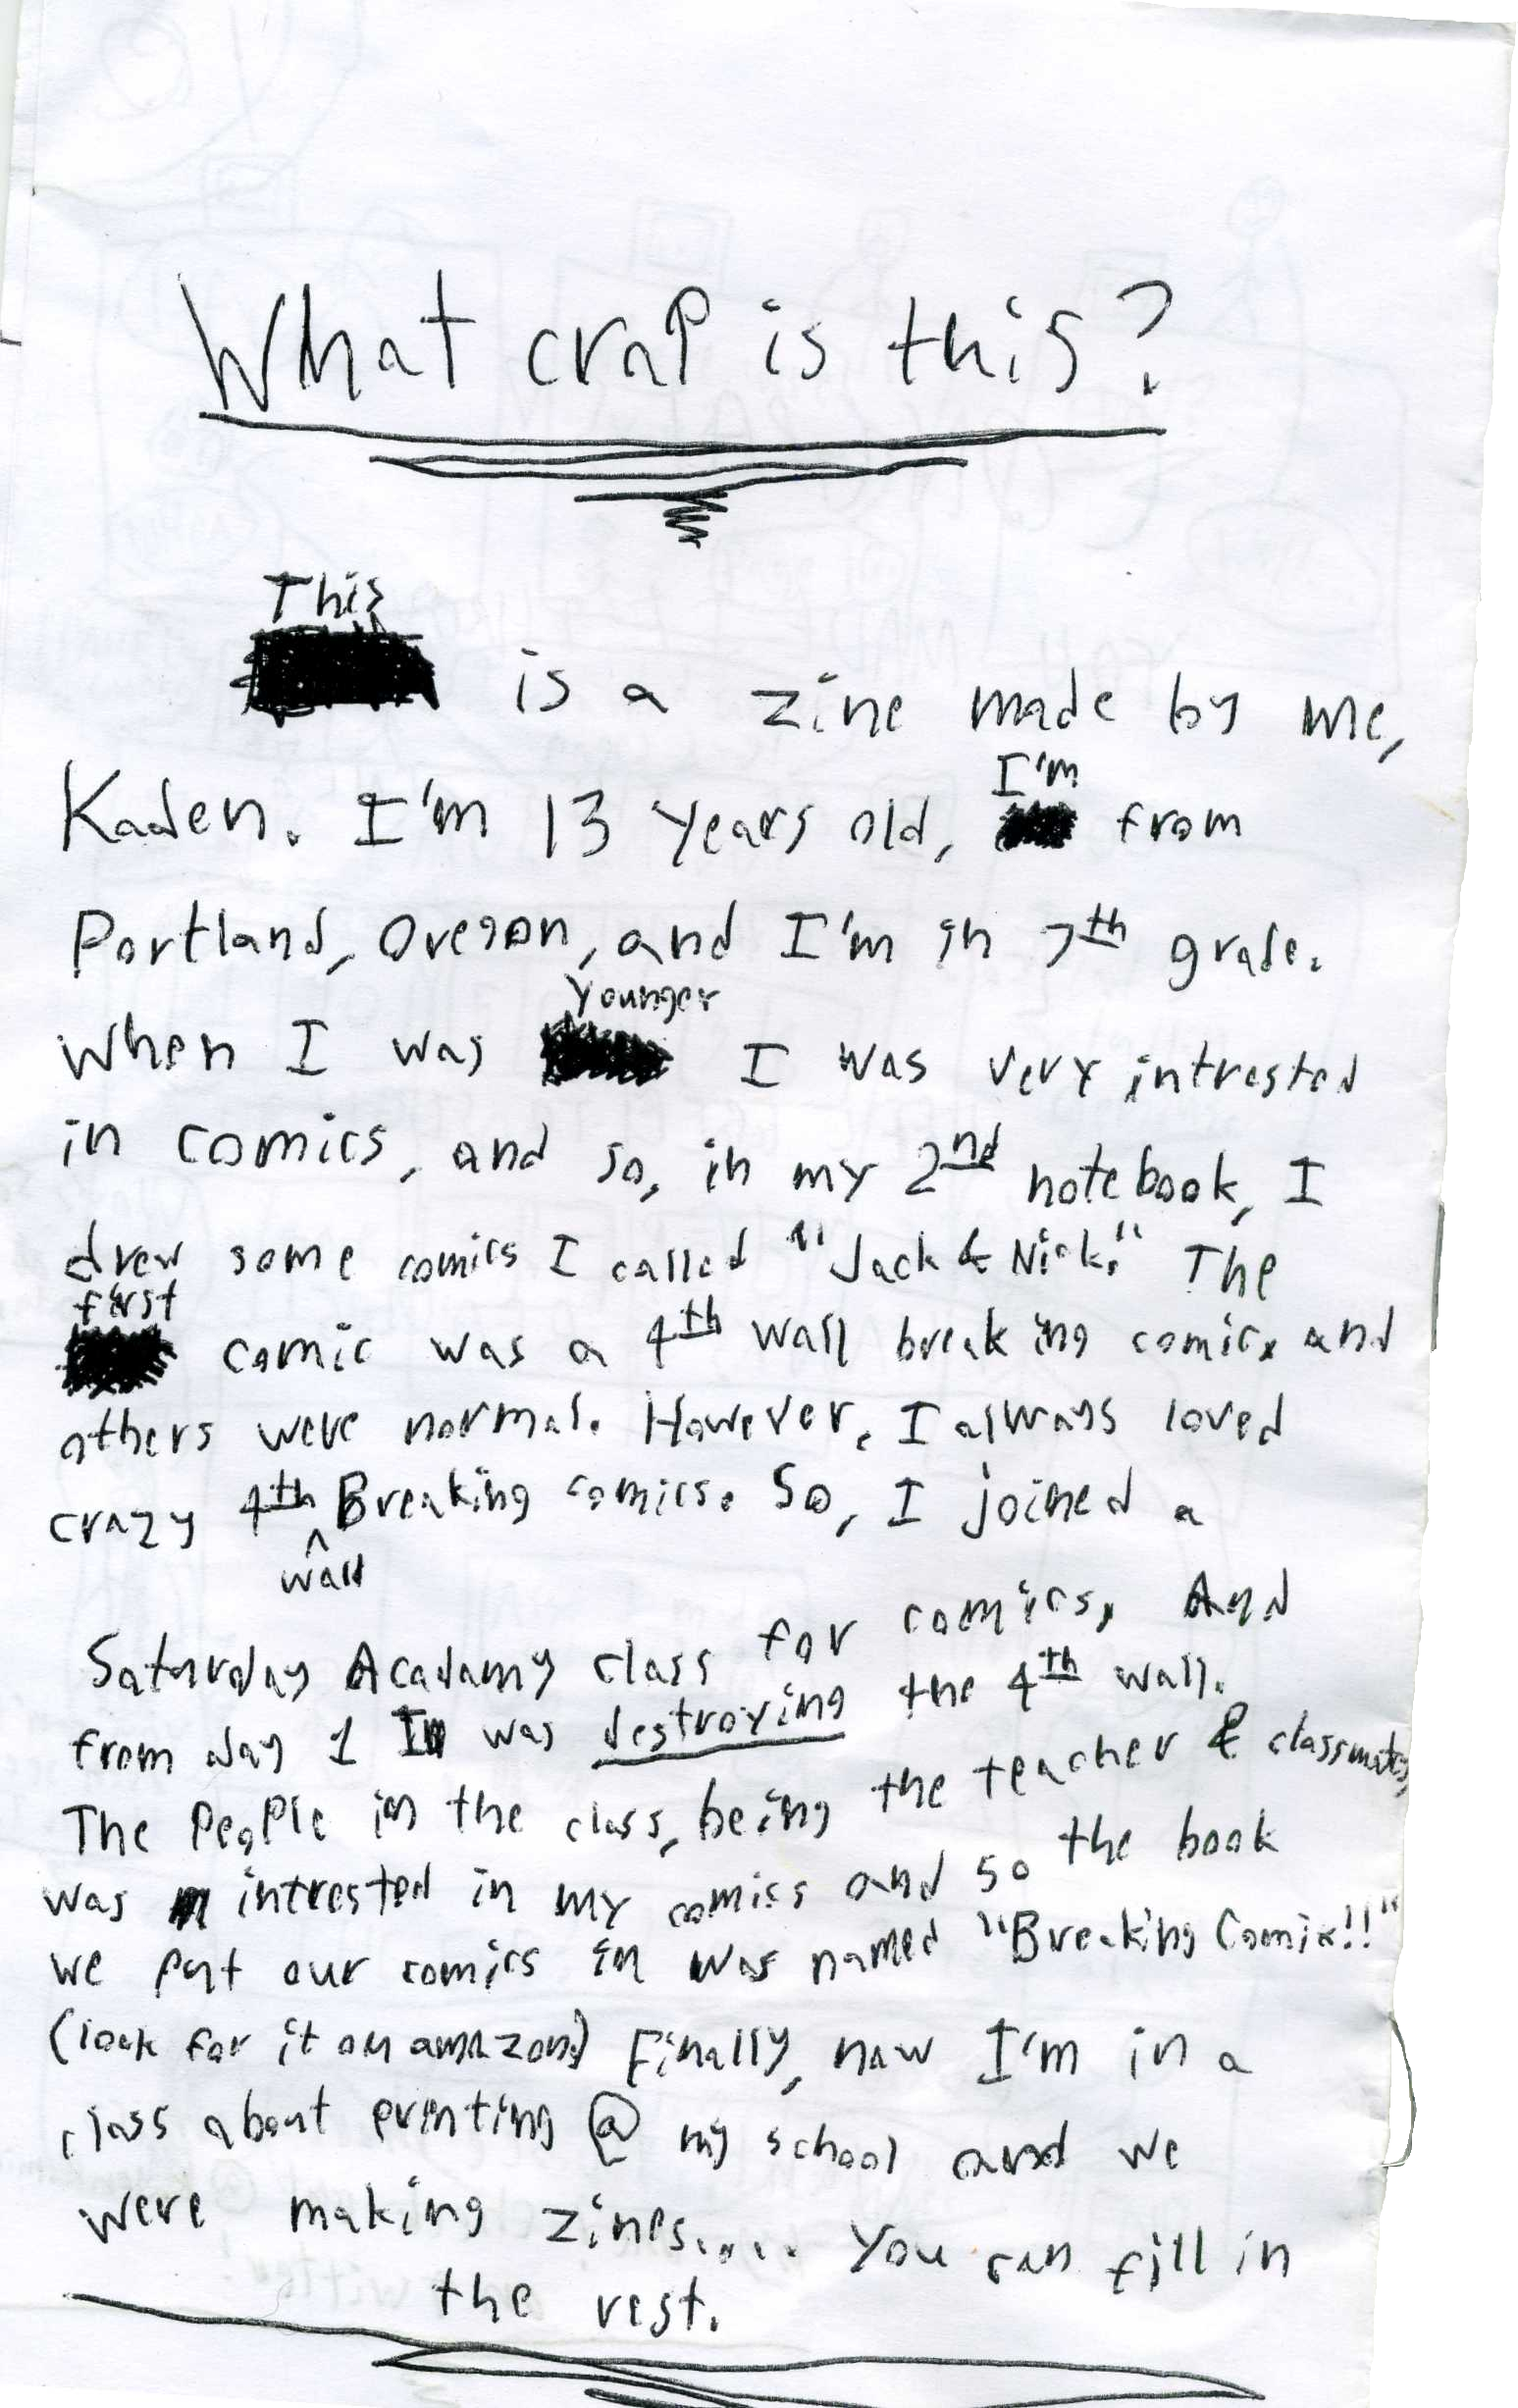 What crap is this?
This
is a zine made by me,
I'm
Kaden. I'm 13 years old, from
Portland, Oregon, and I'm in 7th grade.
younger
When I was I was very intrested
in comics, and so, in my 2nd notebook, I
drew some comics I called "Jack & Nick." The
first
comic was a 4th wall breaking comic, and
others were normal. However, I always loved
crazy 4th Breaking comics. So, I joined a
wall
Saturday Acadamy class for comics, And
from day 1 I was destroying the 4th wall.
The people in the class, being the teacher & classmates,
was intrested in my comics and so the book
we put our comics in was named "Breaking Comix!!"
(look for it on amazon!) Finally, now I'm in a
class about printing @ my school and we
were making zines..... You can fill in
the rest.